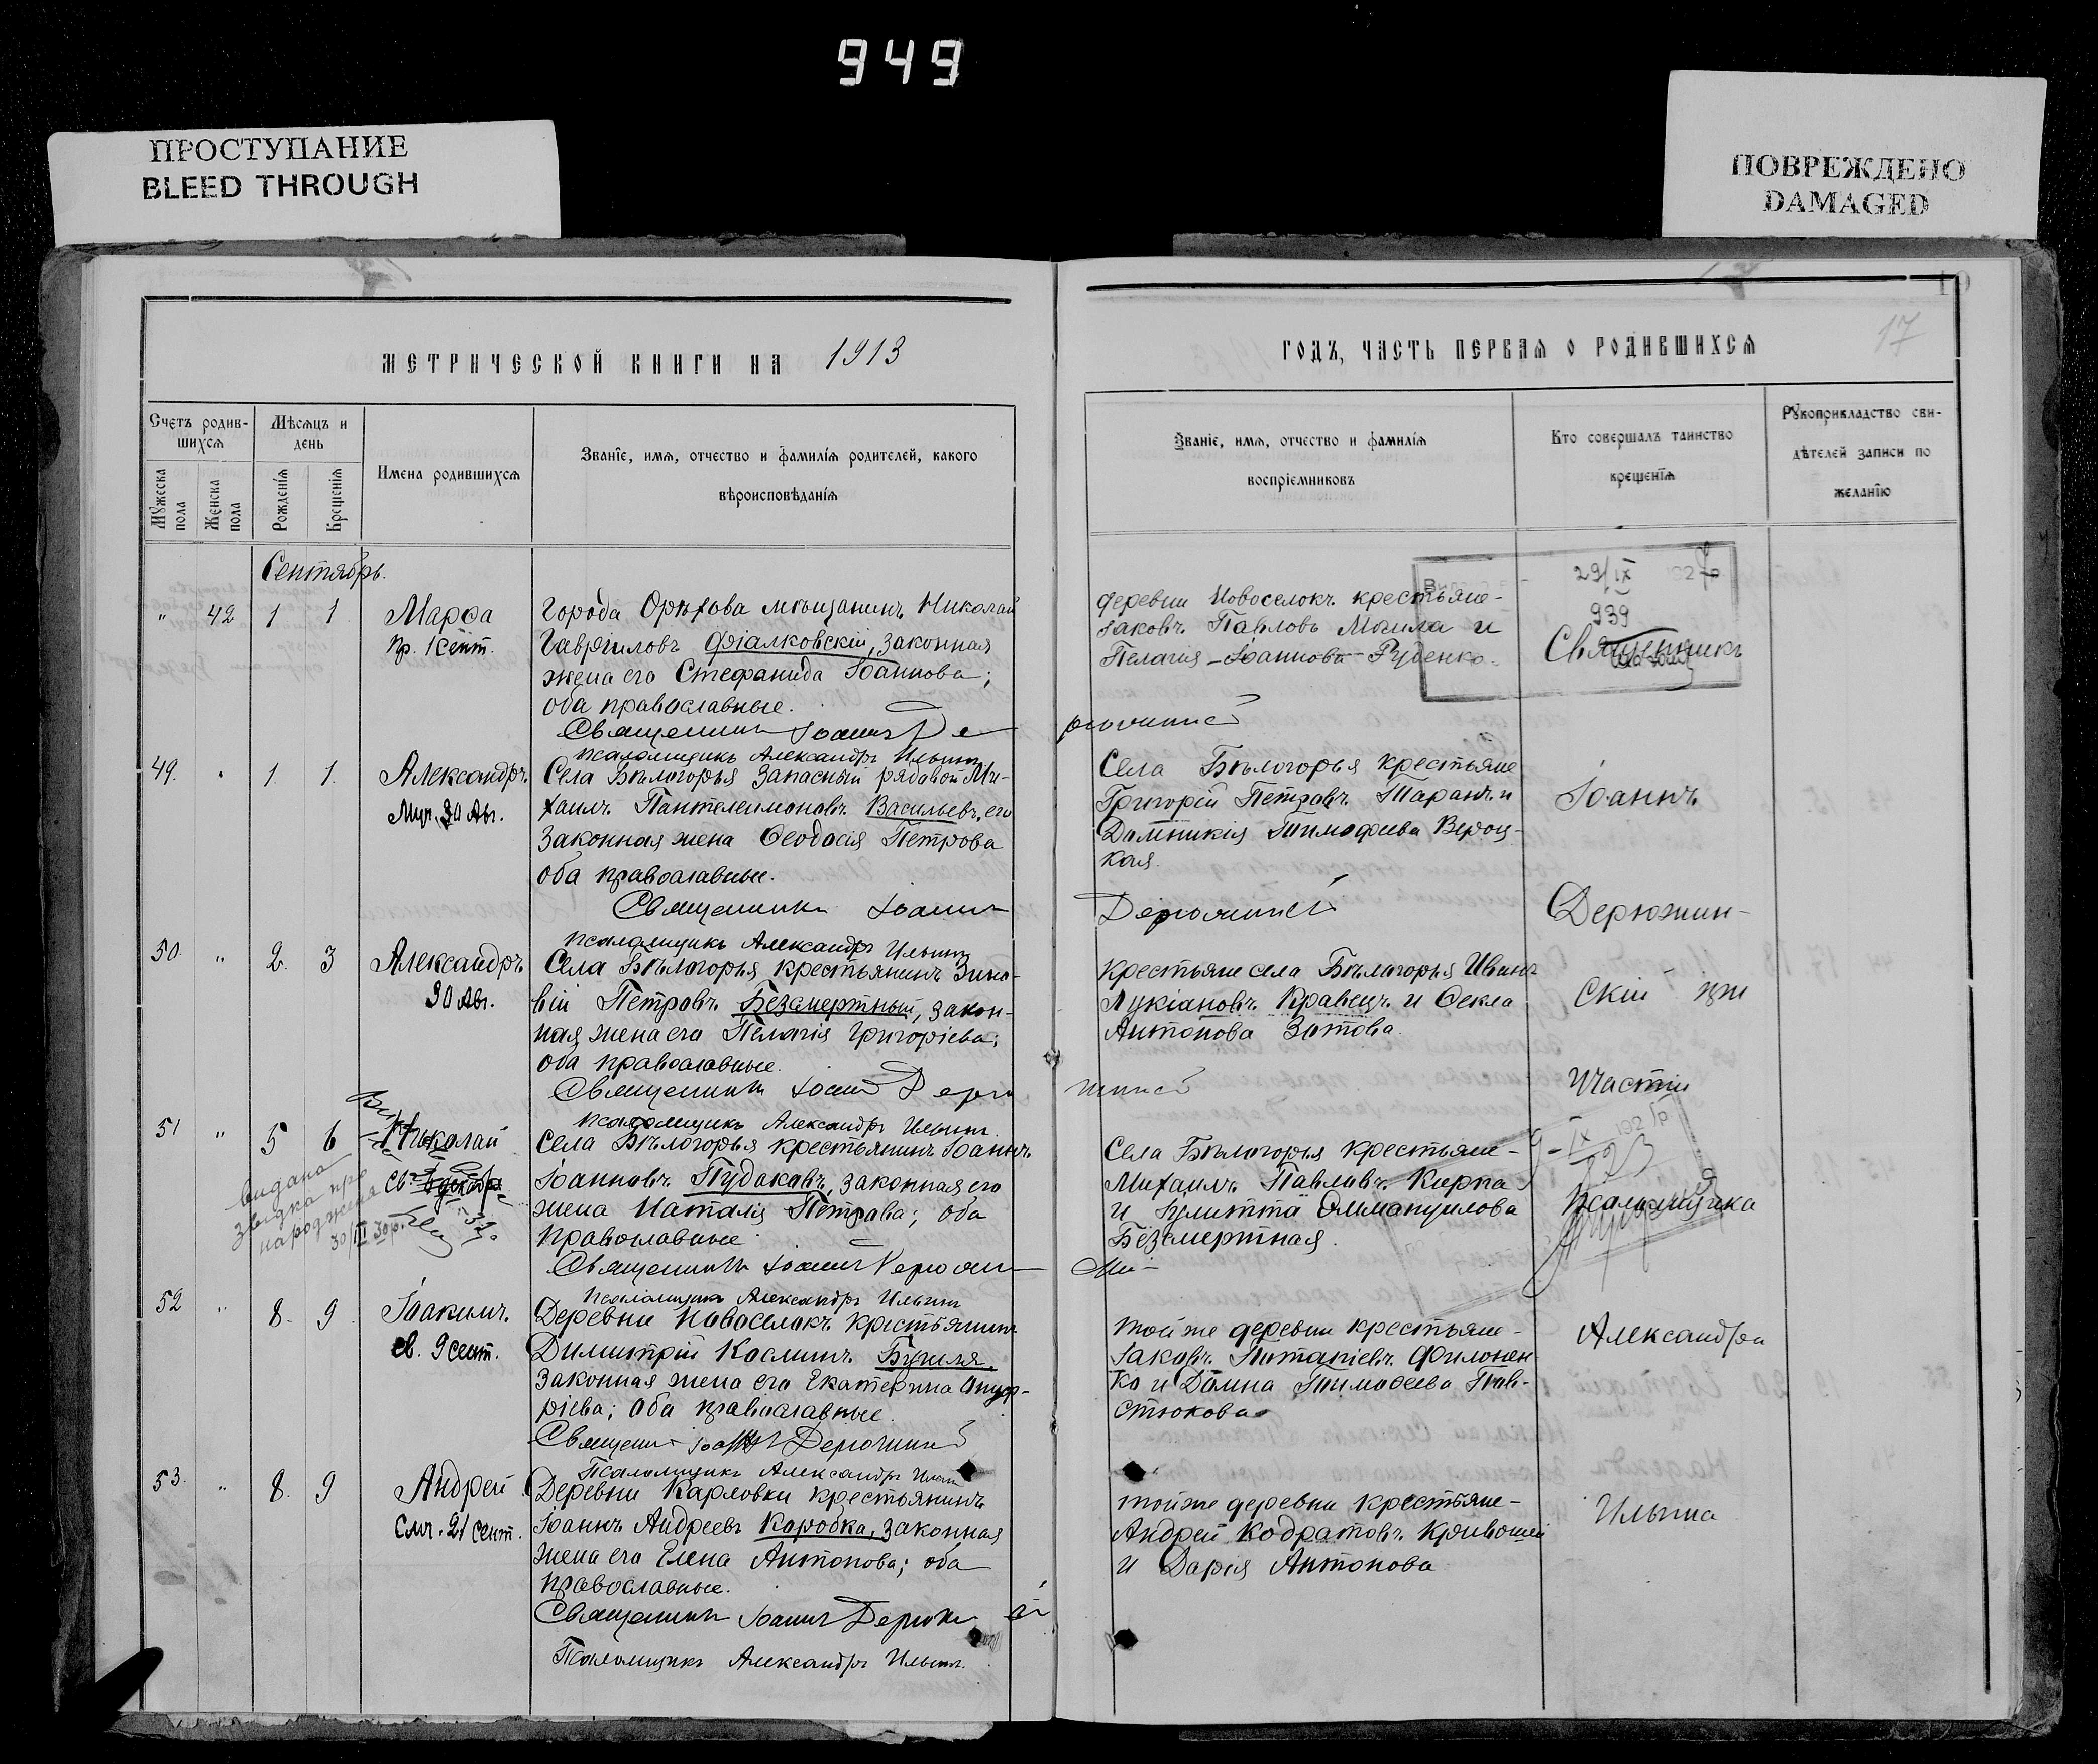 949
ПРОСТУПАНИЕ
BLEED THROUGH
ПОВРЕЖДЕНО
DAMAGED
17
МЕТРИЧЕСКОЙ КНИГИ НА 1913
Счетъ родив-
шихся
Мѣсяцъ и
день
Мужеска
пола
Женска
пола
Рожденїя
Крещенїя
Имена родившихся
Званїе, имя, отчество и фамилїя родителей, какого
вѣроисповѣданїя
Сентябрь.
" 42 1 1 Марѳа
пр. 1 сент.
Города Орѣхова мѣщанинъ Николай
Гавріиловъ Фіалковскій, законная
жена его Стефанида Іоаннова;
оба православные.
Священникъ Іоаннъ Де
Псаломщикъ Александръ Ильинъ
49. " 1. 1. Александръ.
Муч. 30 Авг.
Села Бѣлогорья запасный рядовой Ми-
хаилъ Пантелеимоновъ Васильевъ, его
законная жена Ѳеодосія Петрова
оба православные.
Священникъ Іоаннъ
Псаломщикъ Александръ Ильинъ
50. " 2. 3 Александръ.
30 Авг.
Села Бѣлогорья крестьянинъ Зино-
вій Петровъ Безсмертный, закон-
ная жена его Пелагія Григоріева;
оба православные.
Священникъ Іоаннъ Дерю
Псаломщикъ Александръ Ильинъ.
51 " 5 6 Николай
видано
звідка про
народження
30/III 30р.
Села Бѣлогорья крестьянинъ Іоаннъ
Іоанновъ Пудаковъ, законная его
жена Наталія Петрова; оба
православные.
Священникъ Іоаннъ Дерюжин
Псаломщикъ Александръ Ильинъ
52 " 8. 9 Іоакимъ.
св. 9 сент.
Деревни Новоселокъ крестьянинъ
Димитрій Косминъ Бугиля,
законная жена его Екатерина Онуф-
ріева; оба православные.
Священникъ Іоаннъ Дерюжинскій
Псаломщикъ Александръ Ильинъ
53. " 8. 9 Андрей
См. 21 сент.
Деревни Карловки крестьянинъ
Іоаннъ Андреевъ Коробка, законная
жена его Елена Антонова; оба
православные.
Священникъ Іоаннъ Дерюж
Псаломщикъ Александръ Ильинъ.
ГОДЪ, ЧАСТЬ ПЕРВАЯ О РОДИВШИХСЯ
Званїе, имя, отчество и фамилїя
воспрїемниковъ
Кто совершалъ таинство
крещенїя
Рукоприкладство сви-
дѣтелей записи по
желанїю
деревни Новоселокъ крестьяне-
Іаковъ Павловъ Могила и
Пелагія Іоаннова Руденко.
29/IX 192
939
Священникъ
Села Бѣлогорья крестьяне
Григорій Петровъ Таранъ и
Домникія Тимофеева Вероц-
кая.
Іоаннъ
Дерюжинскій
Дерюжин-
крестьяне села Бѣлогорья Иванъ
Лукіановъ Кравецъ и Ѳекла
Антонова Зотова.
скій при
участіи
Села Бѣлогорья крестьяне-
Михаилъ Павловъ Кирпа
и Іулитта Эммануилова
Безсмертная.
9-IX 192 р
Псаломщика
той же деревни крестьяне-
Іаковъ Потапіевъ Филонен-
ко и Домна Тимоѳеева Тов-
стюкова
Александра
той же деревни крестьяне-
Андрей Кодратовъ Кривошей
и Дарія Антонова
Ильина